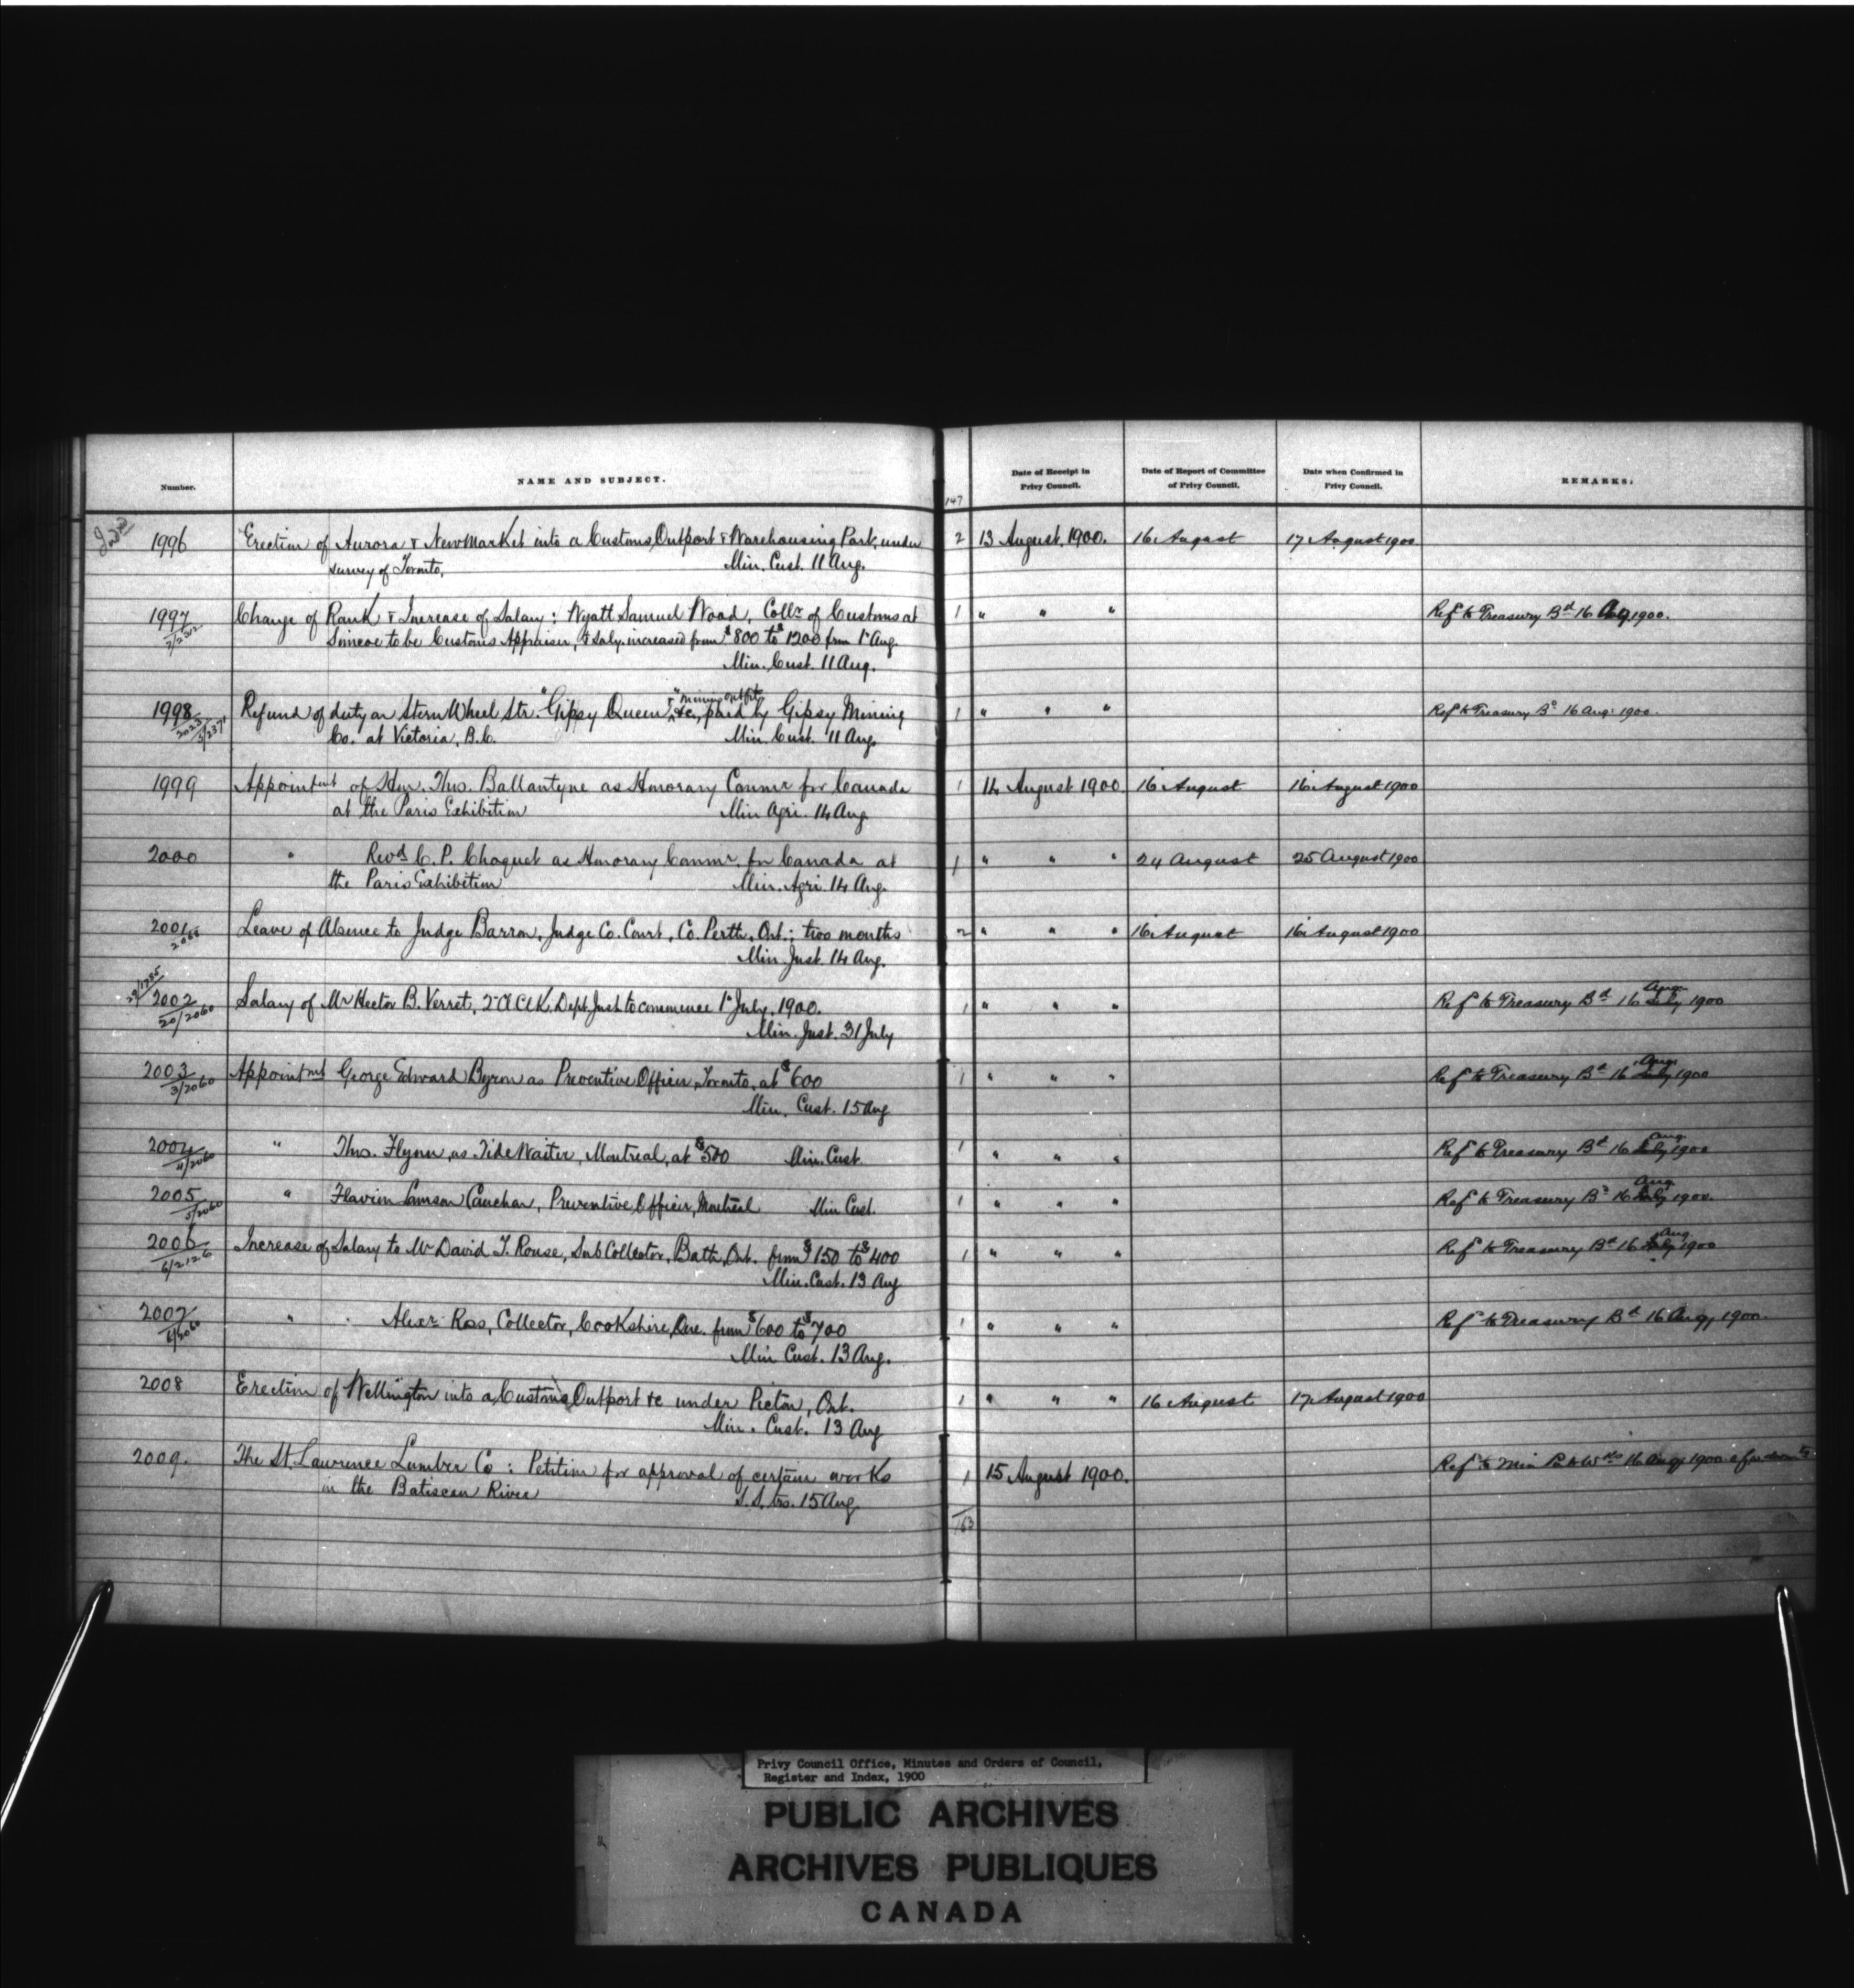 Number.
NAME AND SUBJECT.
147
Date of Receipt in
Privy Council.
Date of Report of Committee
of Privy Council.
Date when Confirmed in
Privy Council.
REMARKS.
1996 Erection of Aurora & NewMarket into a Customs Outport & Warehousing Port, under 2 13 August, 1900. 16 August 17 August 1900
survey of Toronto, Min. Cust. 11 Aug.
1997 Change of Rank & Increase of Salary: Wyatt Samuel Wood, Collr of Customs at 1 " " " Ref to Treasury Bd 16 Aug 1900.
Simcoe to be Customs Appraiser, & Saly. increased from $800 to $1200 from 1st Aug.
Min. Cust. 11 Aug.
& mining outfit
1998 Refund of duty on Stern Wheel Str. "Gipsy Queen" &c, paid by Gipsy Mining 1 " " " Ref to Treasury Bd 16 Aug. 1900.
2023
Co. at Victoria, B.C. Min. Cust. 11 Aug.
1999 Appointmt of Hon. Thos. Ballantyne as Honorary Commr for Canada 1 14 August 1900. 16 August 16 August 1900
at the Paris Exhibition Min Agri. 14 Aug
2000 " Revd C. P. Choquet as Honorary Commr. for Canada at 1 " " " 24 August 25 August 1900
the Paris Exhibition Min. Agri. 14 Aug.
2001 Leave of Absence to Judge Barron, Judge Co. Court, Co. Perth, Ont.; two months 2 " " " 16 August 16 August 1900
Min. Just. 14 Aug.
29/1285
2002 Salary of Mr Hector B. Verret, 2d Cl Clk. Dept Just to commence 1st July, 1900. 1 " " " Ref to Treasury Bd 16 Aug July 1900
20/2060
Min. Just. 31 July
2003 Appointmt George Edward Byron as Preventive Officer, Toronto, at $600 1 " " " Ref to Treasury Bd 16 Aug July 1900
3/2060
Min. Cust. 15 Aug
2004 " Thos. Flynn, as Tide Waiter, Montreal, at $500 Min. Cust. 1 " " " Ref to Treasury Bd 16 Aug July 1900
4/2060
2005 " Flavien Cauchon, Preventive Officer, Montreal Min Cust. 1 " " " Ref to Treasury Bd 16 Aug July 1900.
5/2060
2006 Increase of Salary to Mr David T. Rouse, Sub Collector, Bath, Ont. from $150 to $400 1 " " " Ref to Treasury Bd 16 Aug July 1900
6/2126
Min. Cust. 13 Aug
2007 " " Alexr Ross, Collector, Cookshire, Que. from $600 to $700 1 " " " Ref to Treasury Bd 16 Aug, 1900.
6/2060
Min Cust. 13 Aug.
2008 Erection of Wellington into a Customs Outport &c under Picton, Ont. 1 " " " 16 August 17 August 1900
Min. Cust. 13 Aug
2009. The St. Lawrence Lumber Co: Petition for approval of certain works 1 15 August 1900. Ref to Min Pub Wks 16 Aug 1900
in the Batiscan River S.S. trs. 15 Aug
163
Privy Council Office, Minutes and Orders of Council,
Register and Index, 1900
PUBLIC ARCHIVES
ARCHIVES PUBLIQUES
CANADA